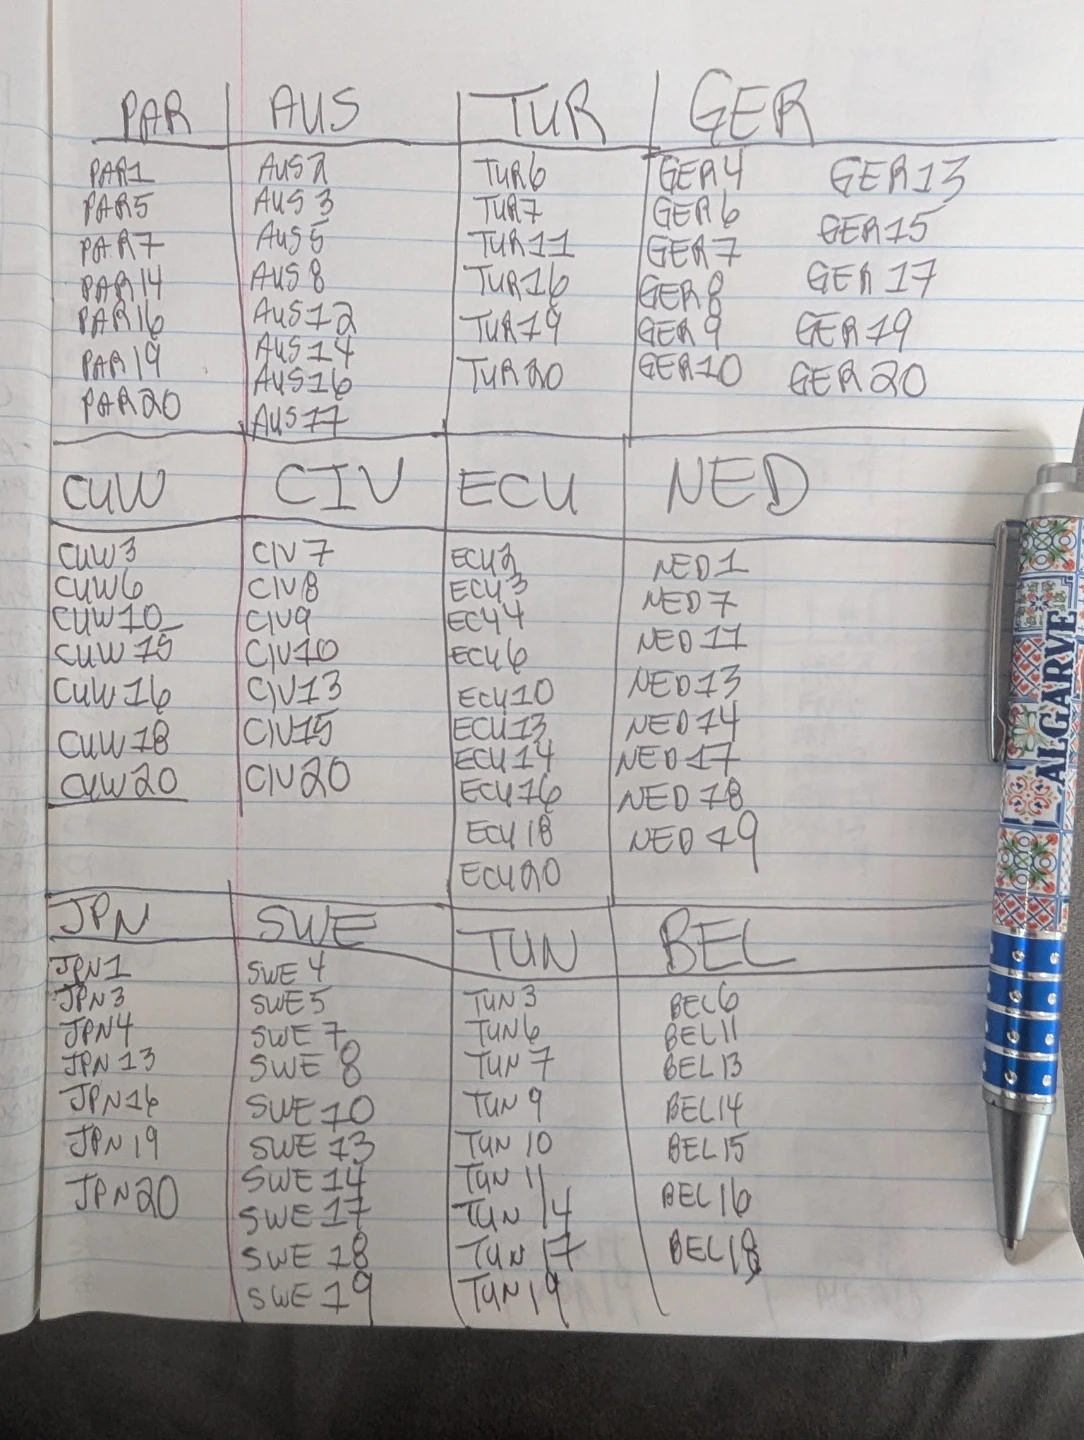 PAR AUS TUR GER
PAR1 AUS2 TUR6 GER4 GER13
PAR5 AUS3 TUR7 GER6 GER15
PAR7 AUS5 TUR11 GER7 GER17
PAR14 AUS8 TUR16 GER8 GER19
PAR16 AUS12 TUR19 GER9 GER20
PAR19 AUS14 TUR20 GER10
PAR20 AUS16
AUS17
CUW CIV ECU NED
CUW3 CIV7 ECU2 NED1
CUW6 CIV8 ECU3 NED7
CUW10 CIV9 ECU4 NED11
CUW15 CIV10 ECU6 NED13
CUW16 CIV13 ECU10 NED14
CUW18 CIV15 ECU13 NED17
CUW20 CIV20 ECU14 NED18
ECU16 NED19
ECU18
ECU20
JPN SWE TUN BEL
JPN1 SWE4 TUN3 BEL6
JPN3 SWE5 TUN6 BEL11
JPN4 SWE7 TUN7 BEL13
JPN13 SWE8 TUN9 BEL14
JPN16 SWE10 TUN10 BEL15
JPN19 SWE13 TUN11 BEL16
JPN20 SWE14 TUN14 BEL18
SWE17 TUN17
SWE18 TUN19
SWE19
ALGARVE